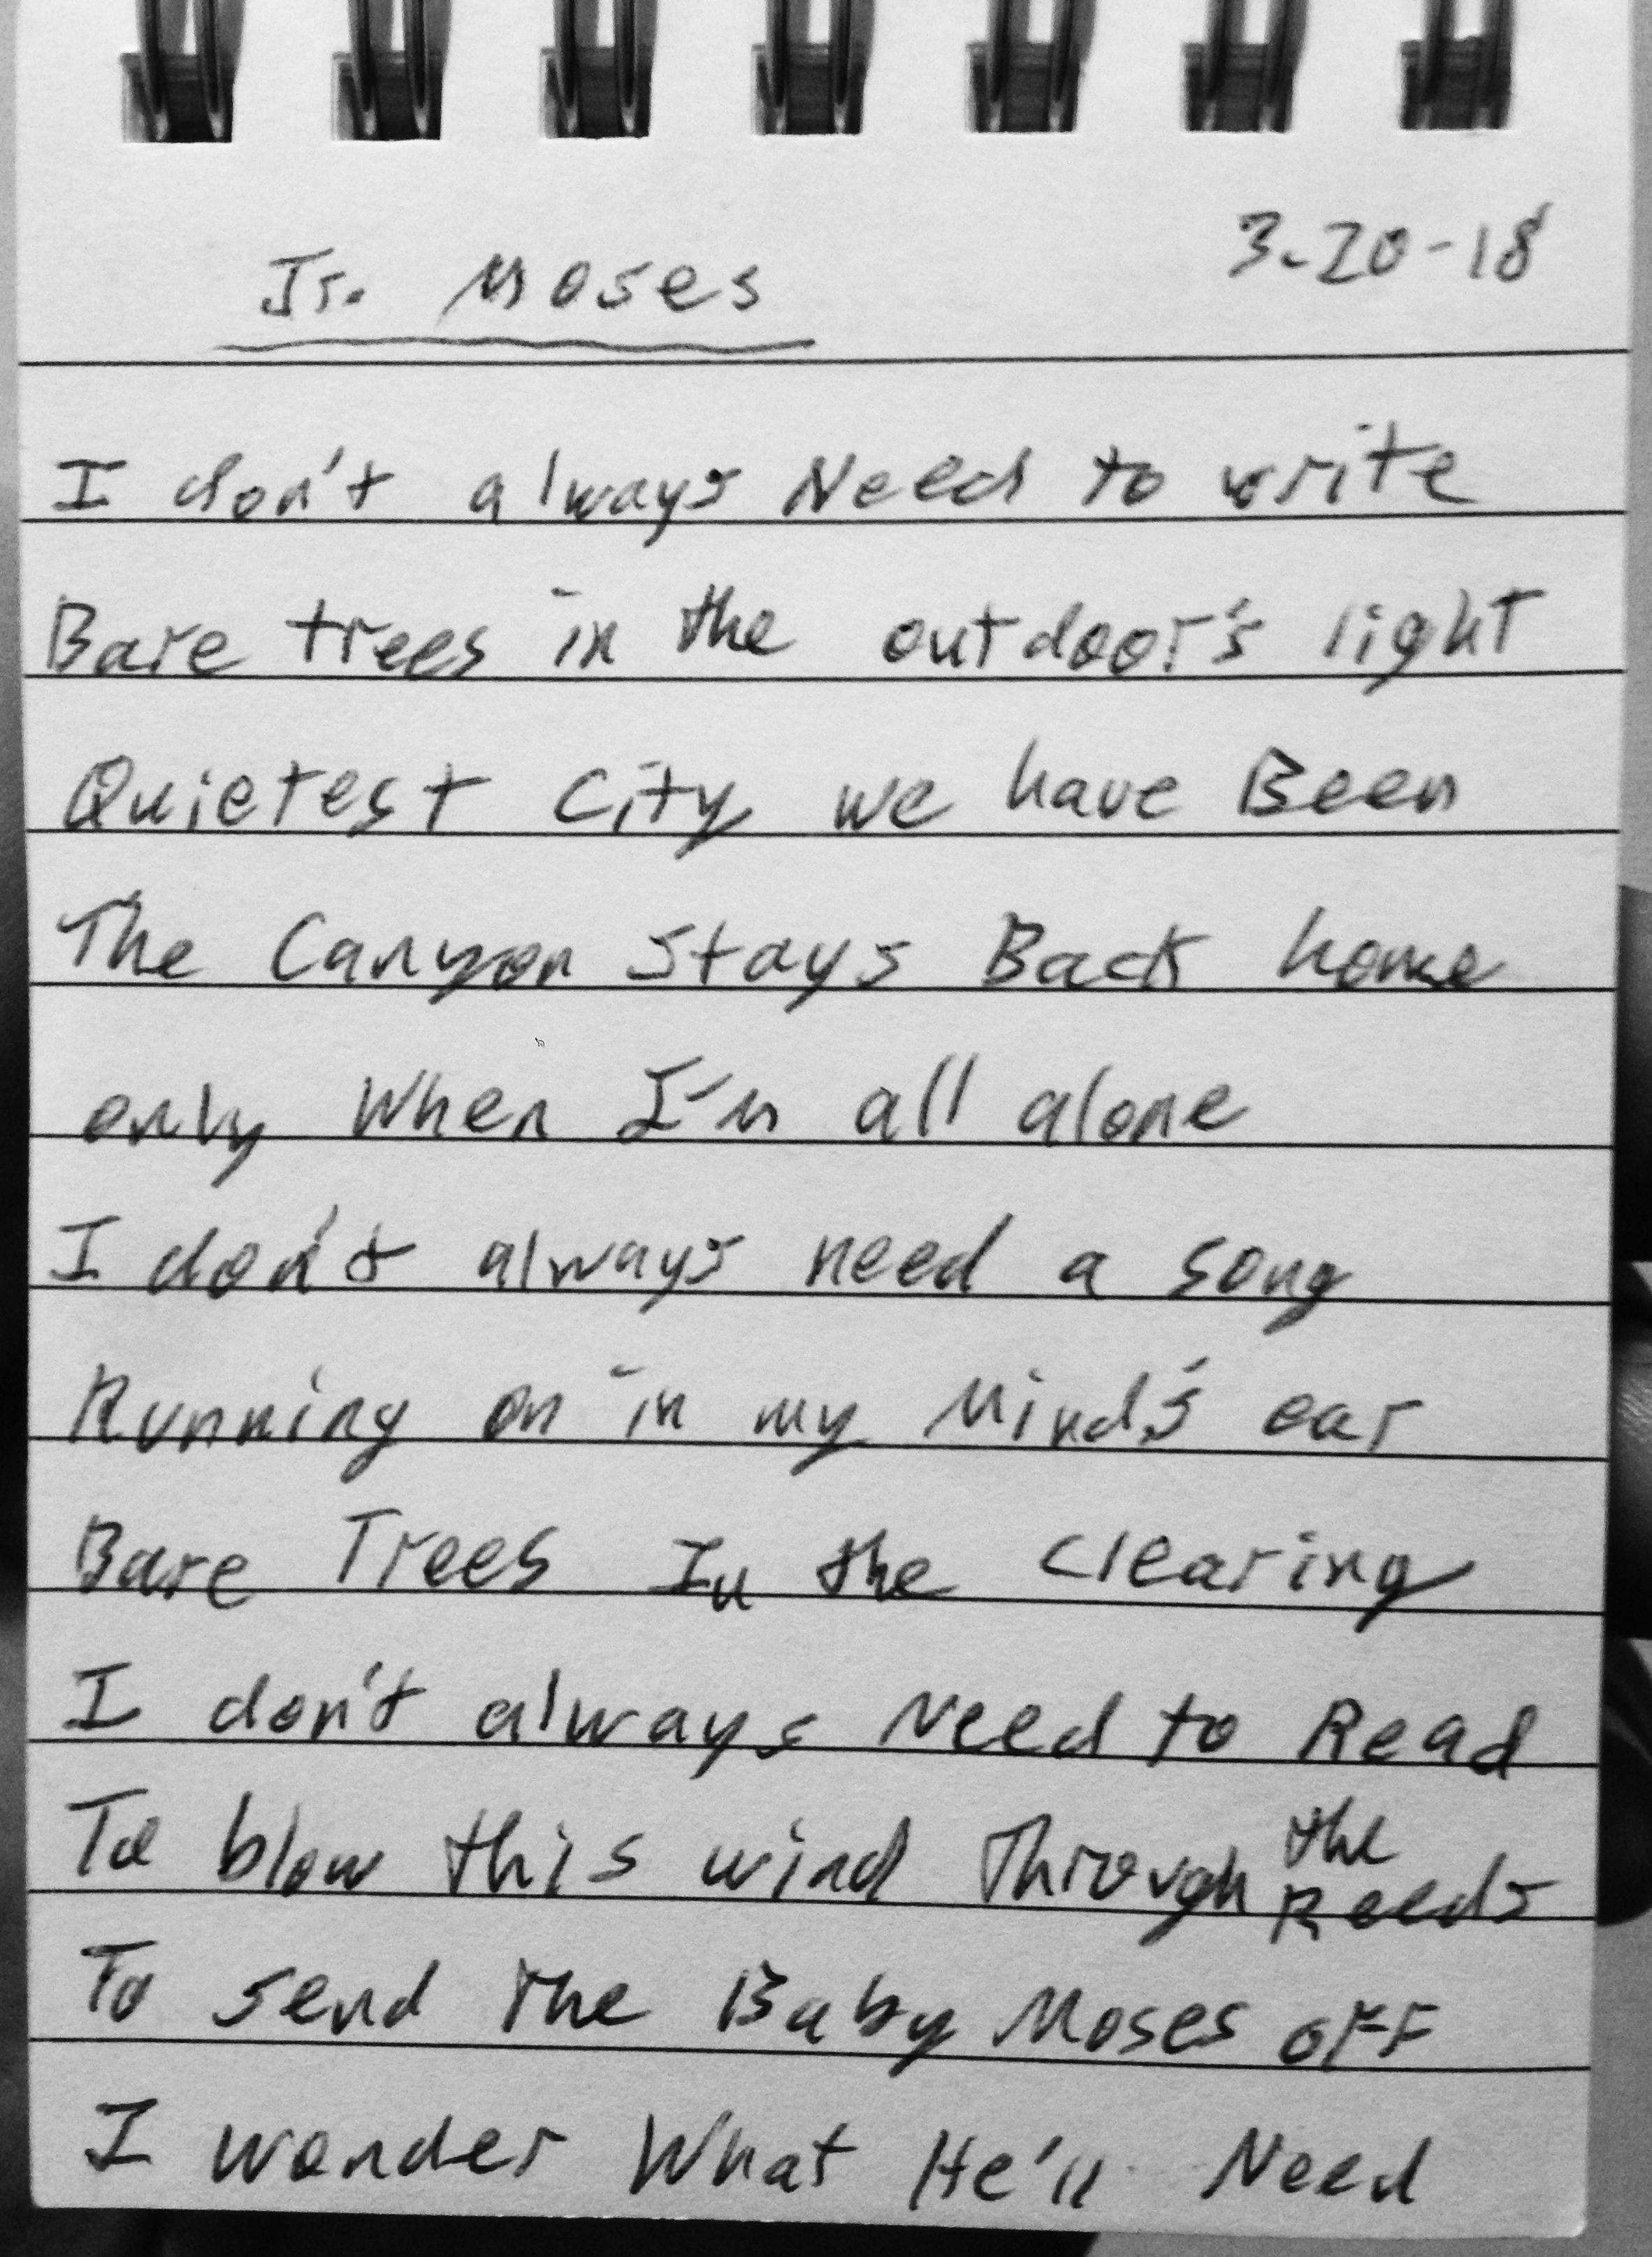 Jr. Moses
3-20-18
I don't always Need to write
Bare trees in the outdoor's light
Quietest City we have Been
The Canyon Stays Back home
only When I'm all alone
I don't always need a song
Running on in my Mind's ear
Bare Trees In the clearing
I don't always Need to Read
To blow this wind Through the Reeds
To send the Baby Moses off
I wonder What He'll Need